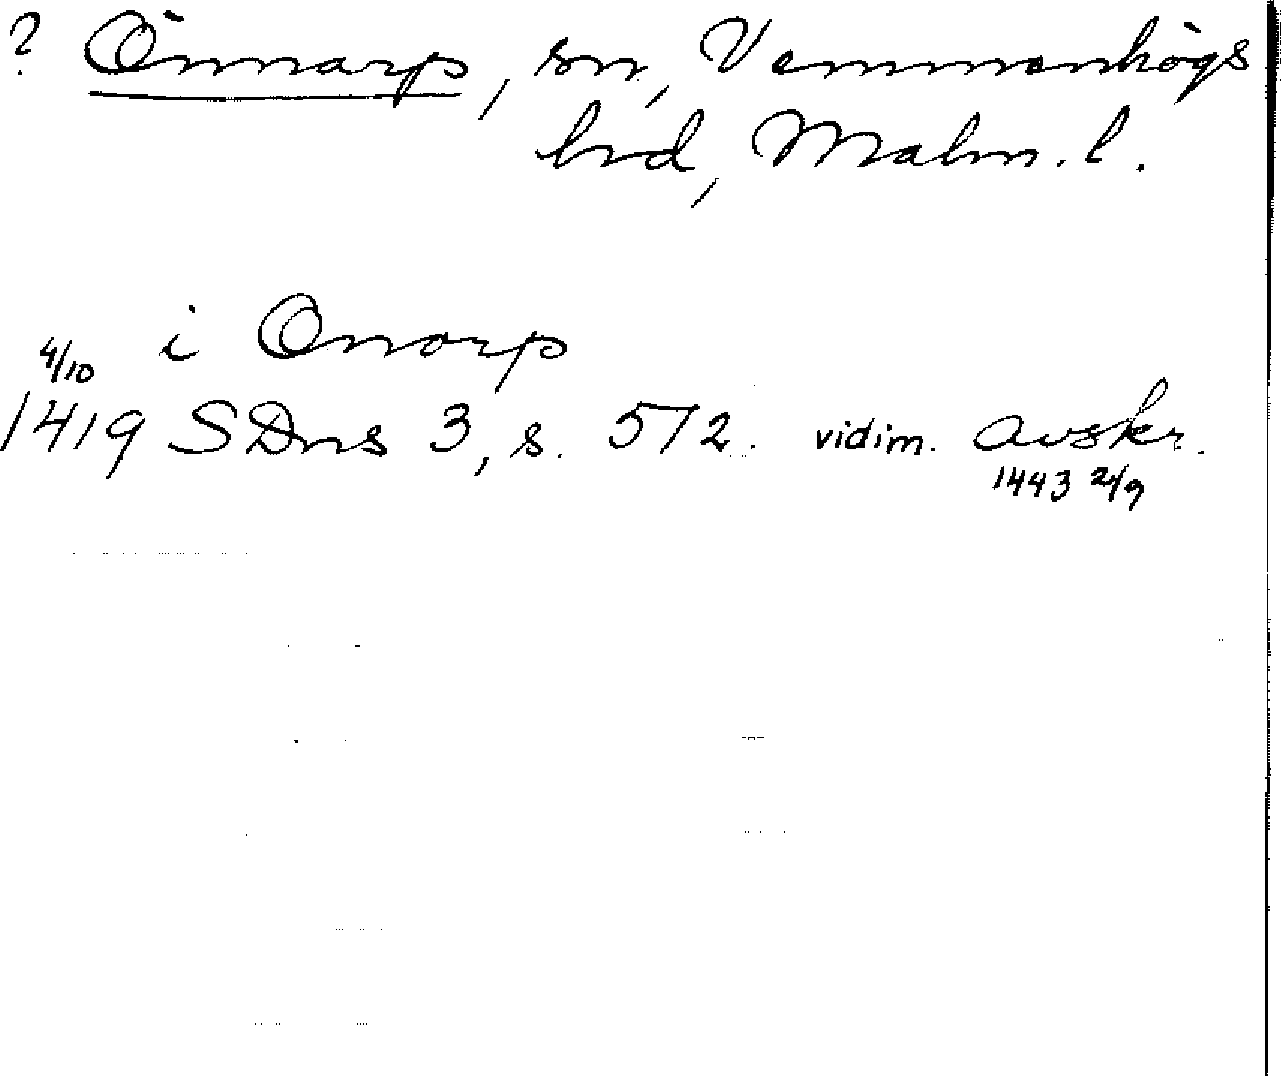 ? Önnarp, sn, Vemmenhögs
hd, Malm. l.
i Onarp
4/10
1419 SDns 3, s. 572. vidim. avskr.
1443 2/9